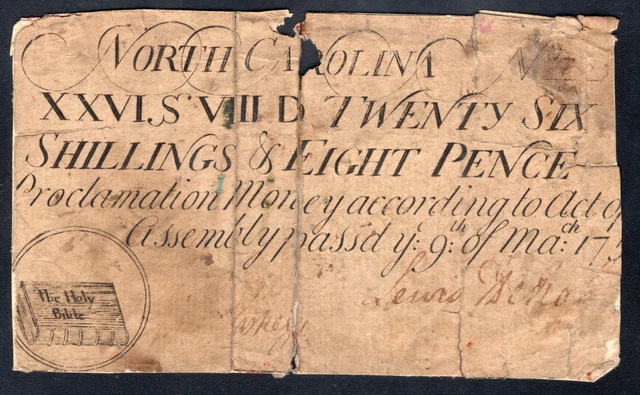 NORTH CAROLINA
XXVI,S VIII D TWENTY SIX
SHILLINGS & EIGHT PENCE
Proclamation Money according to Act of
Assembly passd ye: 9th: of Mach: 17
The Holy
Bible